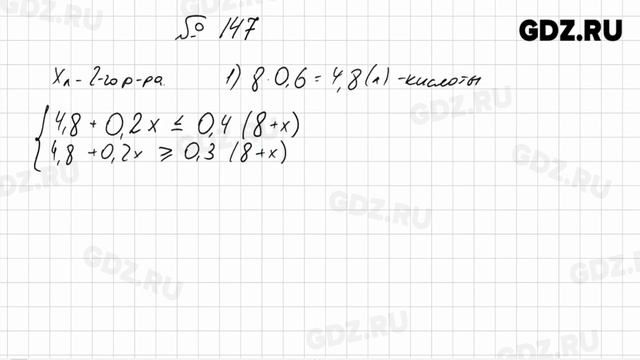 № 147
GDZ.RU
Xл - 2-го р-ра. 1) 8·0,6 = 4,8 (л) - кислоты
4,8 + 0,2x ≤ 0,4 (8+x)
4,8 + 0,2x ≥ 0,3 (8+x)
GDZ.RU
GDZ.RU
GDZ.RU
GDZ.RU
GDZ.RU
GDZ.RU
GDZ.RU
GDZ.RU
GDZ.RU